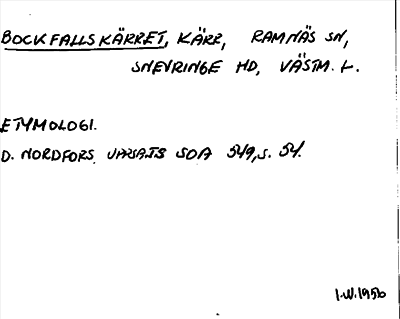 BOCKFALLSKÄRRET, KÄRR, RAMNÄS SN,
SNEVRINGE HD, VÄSTM. L.
ETYMOLOGI.
D. NORDFORS UPPSATS SOA 549, S. 54.
I.W. 1956